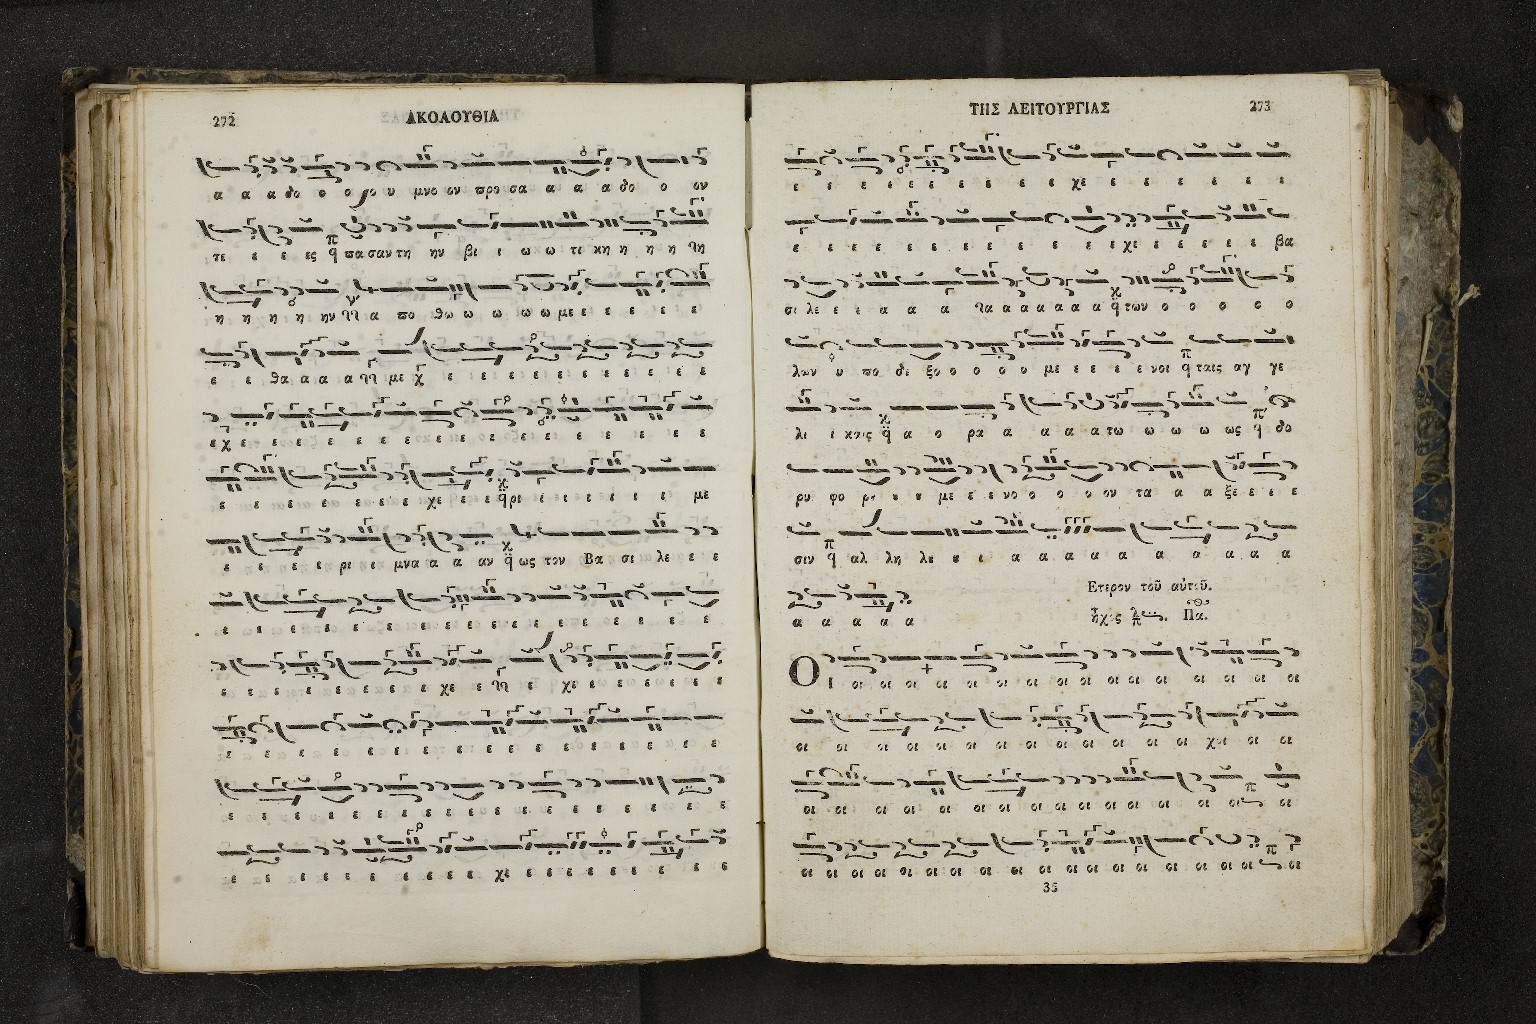 272
ΑΚΟΛΟΥΘΙΑ
α α α δο ο ο ο υ μνο ον προ σα α α α δο ο ον
τε ε ε ες πα σαν τη ην βι ι ω ω τι κη η η η
η η η η ην α πο θω ω ω ω ω με ε ε ε ε ε
ε ε θα α α α με χ ε ε ε ε ε ε ε ε ε ε ε
ε χε ε ε ε ε ε ε ε ε ε ε ε ε ε ε ε ε
ε ε ε ε ε ε ε ε χε ε ε ρι ι ι ι ι ι ι με
ε ε ε ε ρι ι μνα α α αν ως τον Βα σι λε ε ε
ε ε ε ε ε ε ε ε ε ε ε ε ε ε ε ε
ε ε ε ε ε ε ε ε χε ε ε χε ε ε ε ε ε
ε ε ε ε ε ε ε ε ε ε ε ε ε ε ε ε
ε ε ε ε ε ε ε ε ε ε ε ε ε ε ε ε
ε ε ε ε ε ε ε ε ε ε χε ε ε ε ε ε ε ε ε
ΤΗΣ ΛΕΙΤΟΥΡΓΙΑΣ
273
ε ε ε ε ε ε ε ε ε ε χε ε ε ε ε ε ε
ε ε ε ε ε ε ε ε ε ε ε χε ε ε ε ε ε βα
σι λε ε ε α α α α α α α α α των ο ο ο ο ο
λων υ πο δε ξο ο ο ο ο με ε ε ε ε νοι ταις αγ γε
λι ι καις α ο ρα α α α α τω ω ω ω ως δο
ρυ φο ρ υ υ με ε ε νο ο ο ο ον τα α α ξε ε ε ε
σιν αλ λη λ ι α α α α α α α α α α
α α α α α
Ετερον τοῦ αὐτοῦ.
ἦχος Πα.
Ο ι οι οι οι οι οι οι οι οι οι οι οι οι οι οι οι
οι οι οι οι οι οι οι οι οι οι οι οι οι χοι οι οι
οι οι οι οι οι οι οι οι οι οι οι οι οι οι οι οι
οι οι οι οι οι οι οι οι οι οι οι οι οι οι οι οι οι οι
35